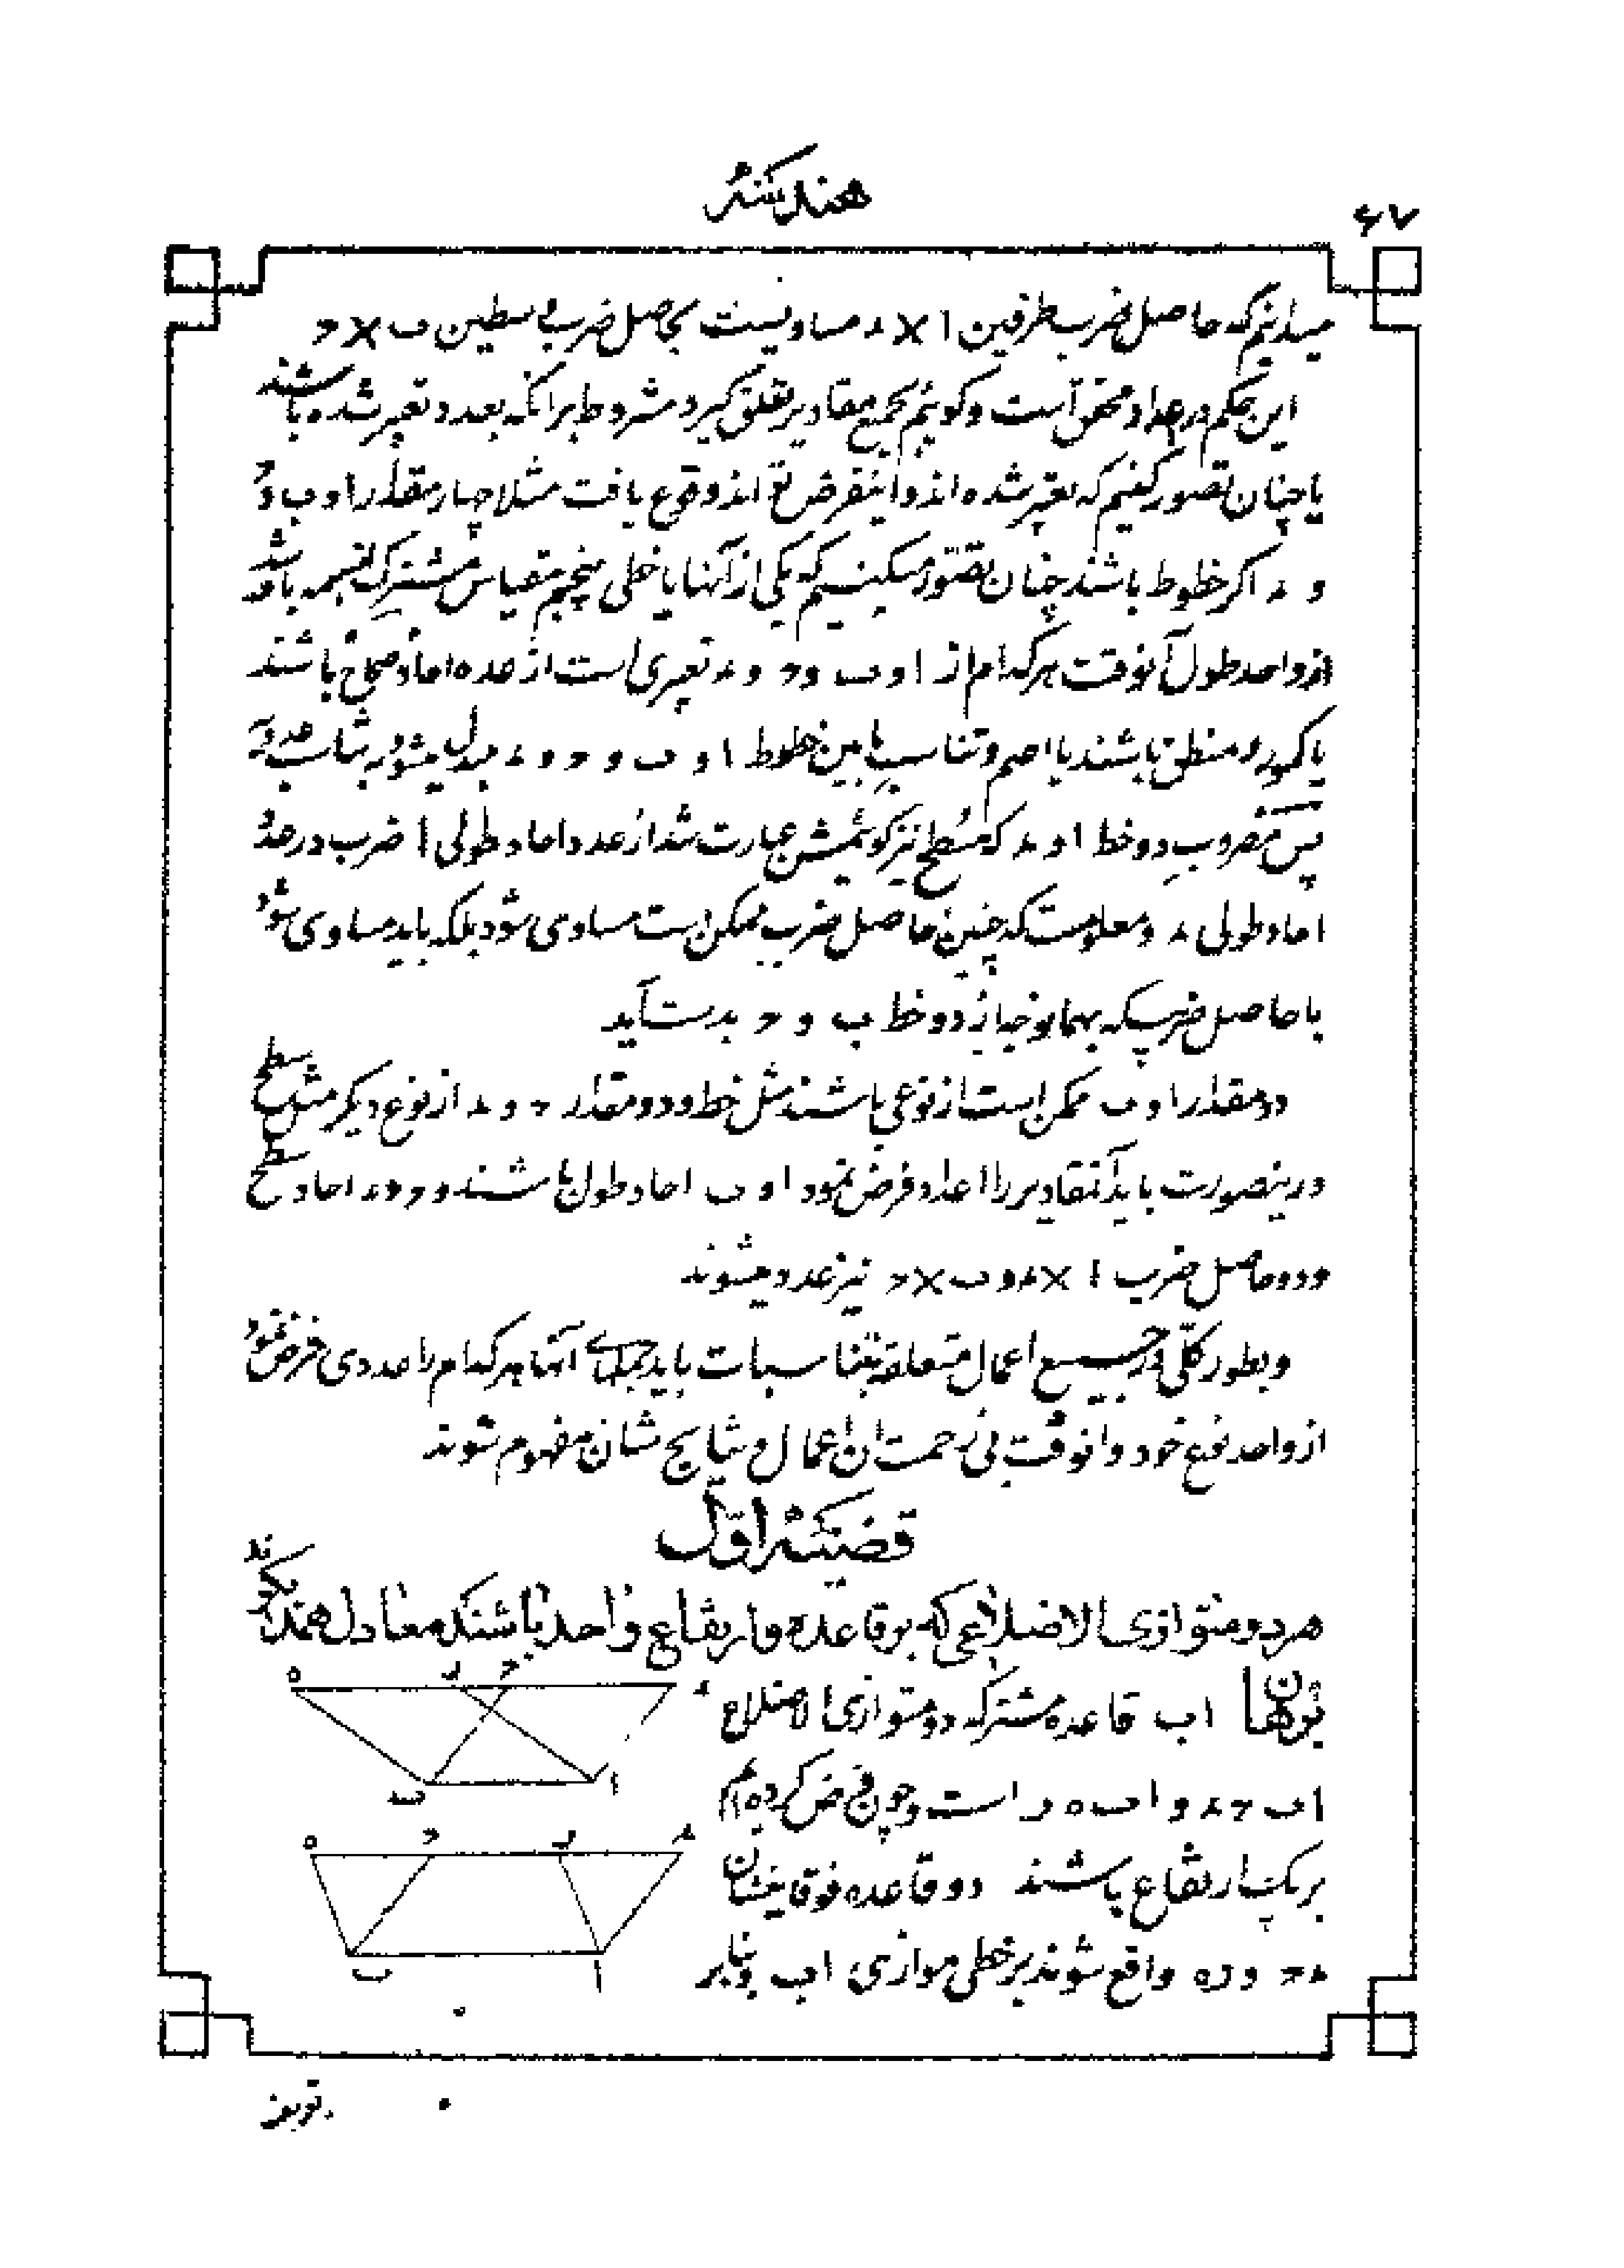 هندسه
۶۷
میدانیم که حاصل ضرب طرفین ا × ء مساویست بحاصل ضرب وسطین ب × ح
این حکم در اعداد محقق است و گوئیم بجمیع مقادیر تعلق گیرد مشروط برانکه بعدد تعبیر شده باشند
یا چنان تصور کنیم که تعبیر شده‌اند و اینفرض تواند وقوع یافت مثلا چهار مقدار ا و ب و ح
و ء اگر خطوط باشند چنان تصور میکنیم که یکی از آنها یا خطی پنجم مقیاس مشترک همه باشد
از واحد طول آنوقت هر کدام از ا و ب و ح و ء تعبیری است از عده احاد صحاح باشند
یا کسور و منطق باشند یا اصم و تناسب ما بین خطوط ا و ب و ح و ء مبدل میشود بتناسب عددیه
پس مضروب دو خط ا و ء که مسطح نیز گوئیمش عبارت شد از عدد احاد طولی ا ضرب در عدد
احاد طولی ء و معلومست که چنین حاصل ضرب ممکن است مساوی شود بلکه باید مساوی شود
با حاصل ضربیکه بهمانوجه از دو خط ب و ح بدست آید
دو مقدار ا و ب ممکن است از نوعی باشند مثل خط و دو مقدار ح و ء از نوع دیگر مثل سطح
درینصورت باید آنمقادیر را اعداد فرض نمود ا و ب احاد طول باشند و ح و ء احاد سطح
و دو حاصل ضرب ا × ء و ب × ح نیز عدد میشوند
و بطور کلی در جمیع اعمال متعلقه بتناسبات باید جمله‌های آنها هر کدام را عددی فرض نمود
از واحد نوع خود و انوقت بی زحمت ان اعمال و نتایج شان مفهوم شوند
قضیه اول
هر دو متوازی الاضلاعی که بر قاعده و ارتفاع واحد باشند معادل همدیگرند
برهان ا ب قاعده مشترکه دو متوازی الاضلاع
ا ب ح ء و ا ب ه ر است و چون فرض کرده‌ایم
بر یک ارتفاع باشند دو قاعده فوقانیشان
ء ح و ر ه واقع شوند بر خطی موازی ا ب و بنابر
ه ر ح ء
ب ا
ه ح ر ء
ب ا
تعریف